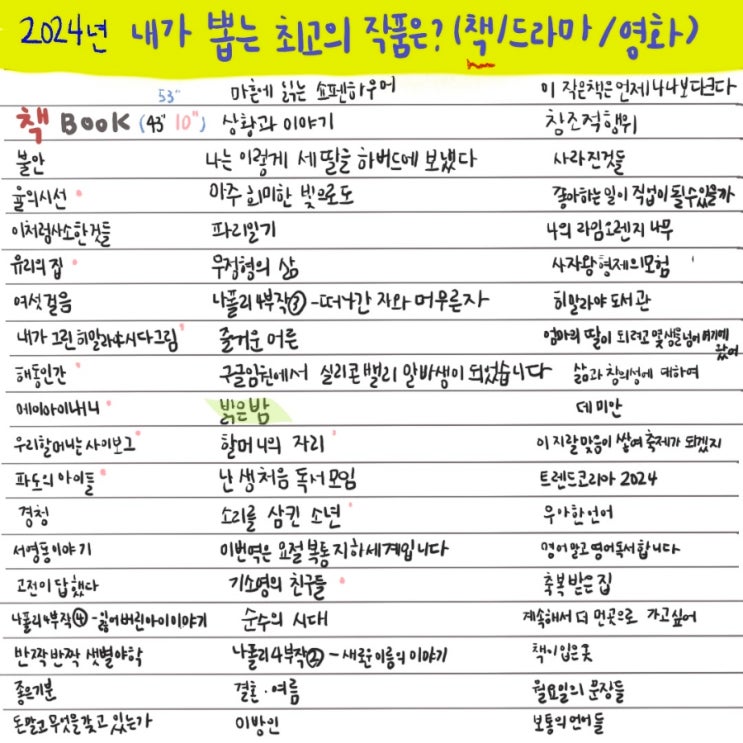 2024년 내가 뽑는 최고의 작품은? (책/드라마/영화)
53" 마흔에 읽는 쇼펜하우어 이 작은책은 언제나 나보다 크다
책 BOOK (43" 10") 상황과 이야기 창조적 행위
불안 나는 이렇게 세 딸을 하버드에 보냈다 사라진것들
율의시선 아주 희미한 빛으로도 좋아하는 일이 직업이 될수있을까
이처럼사소한것들 파리일기 나의 라임오렌지 나무
유리의 집 무정형의 삶 사자왕 형제의모험
여섯걸음 나폴리 4부작③-떠나간 자와 머무른자 히말라야 도서관
내가 그린 히말라야시다그림 즐거운 어른 엄마의 딸이 되려고 몇생을넘어 여기에 왔어
해동인간 구글임원에서 실리콘밸리 알바생이 되었습니다 삶과 창의성에 대하여
에이아이내니 밝은밤 데미안
우리할머니는사이보그 할머니의 자리 이 지랄맞음이 쌓여 축제가 되겠지
파도의 아이들 난생처음 독서모임 트렌드코리아 2024
경청 소리를 삼킨 소년 우아한언어
서영동이야기 이번역은 요절복통 지하세계입니다 영어말고영어독서합니다
고전이 답했다 기소영의 친구들 축복받은집
나폴리4부작④-잃어버린아이이야기 순수의 시대 계속해서 더 먼곳으로 가고싶어
반짝반짝 샛별야학 나폴리4부작②-새로운이름의 이야기 책이입은옷
좋은기분 결혼·여름 월요일의 문장들
돈말고무엇을갖고 있는가 이방인 보통의언어들